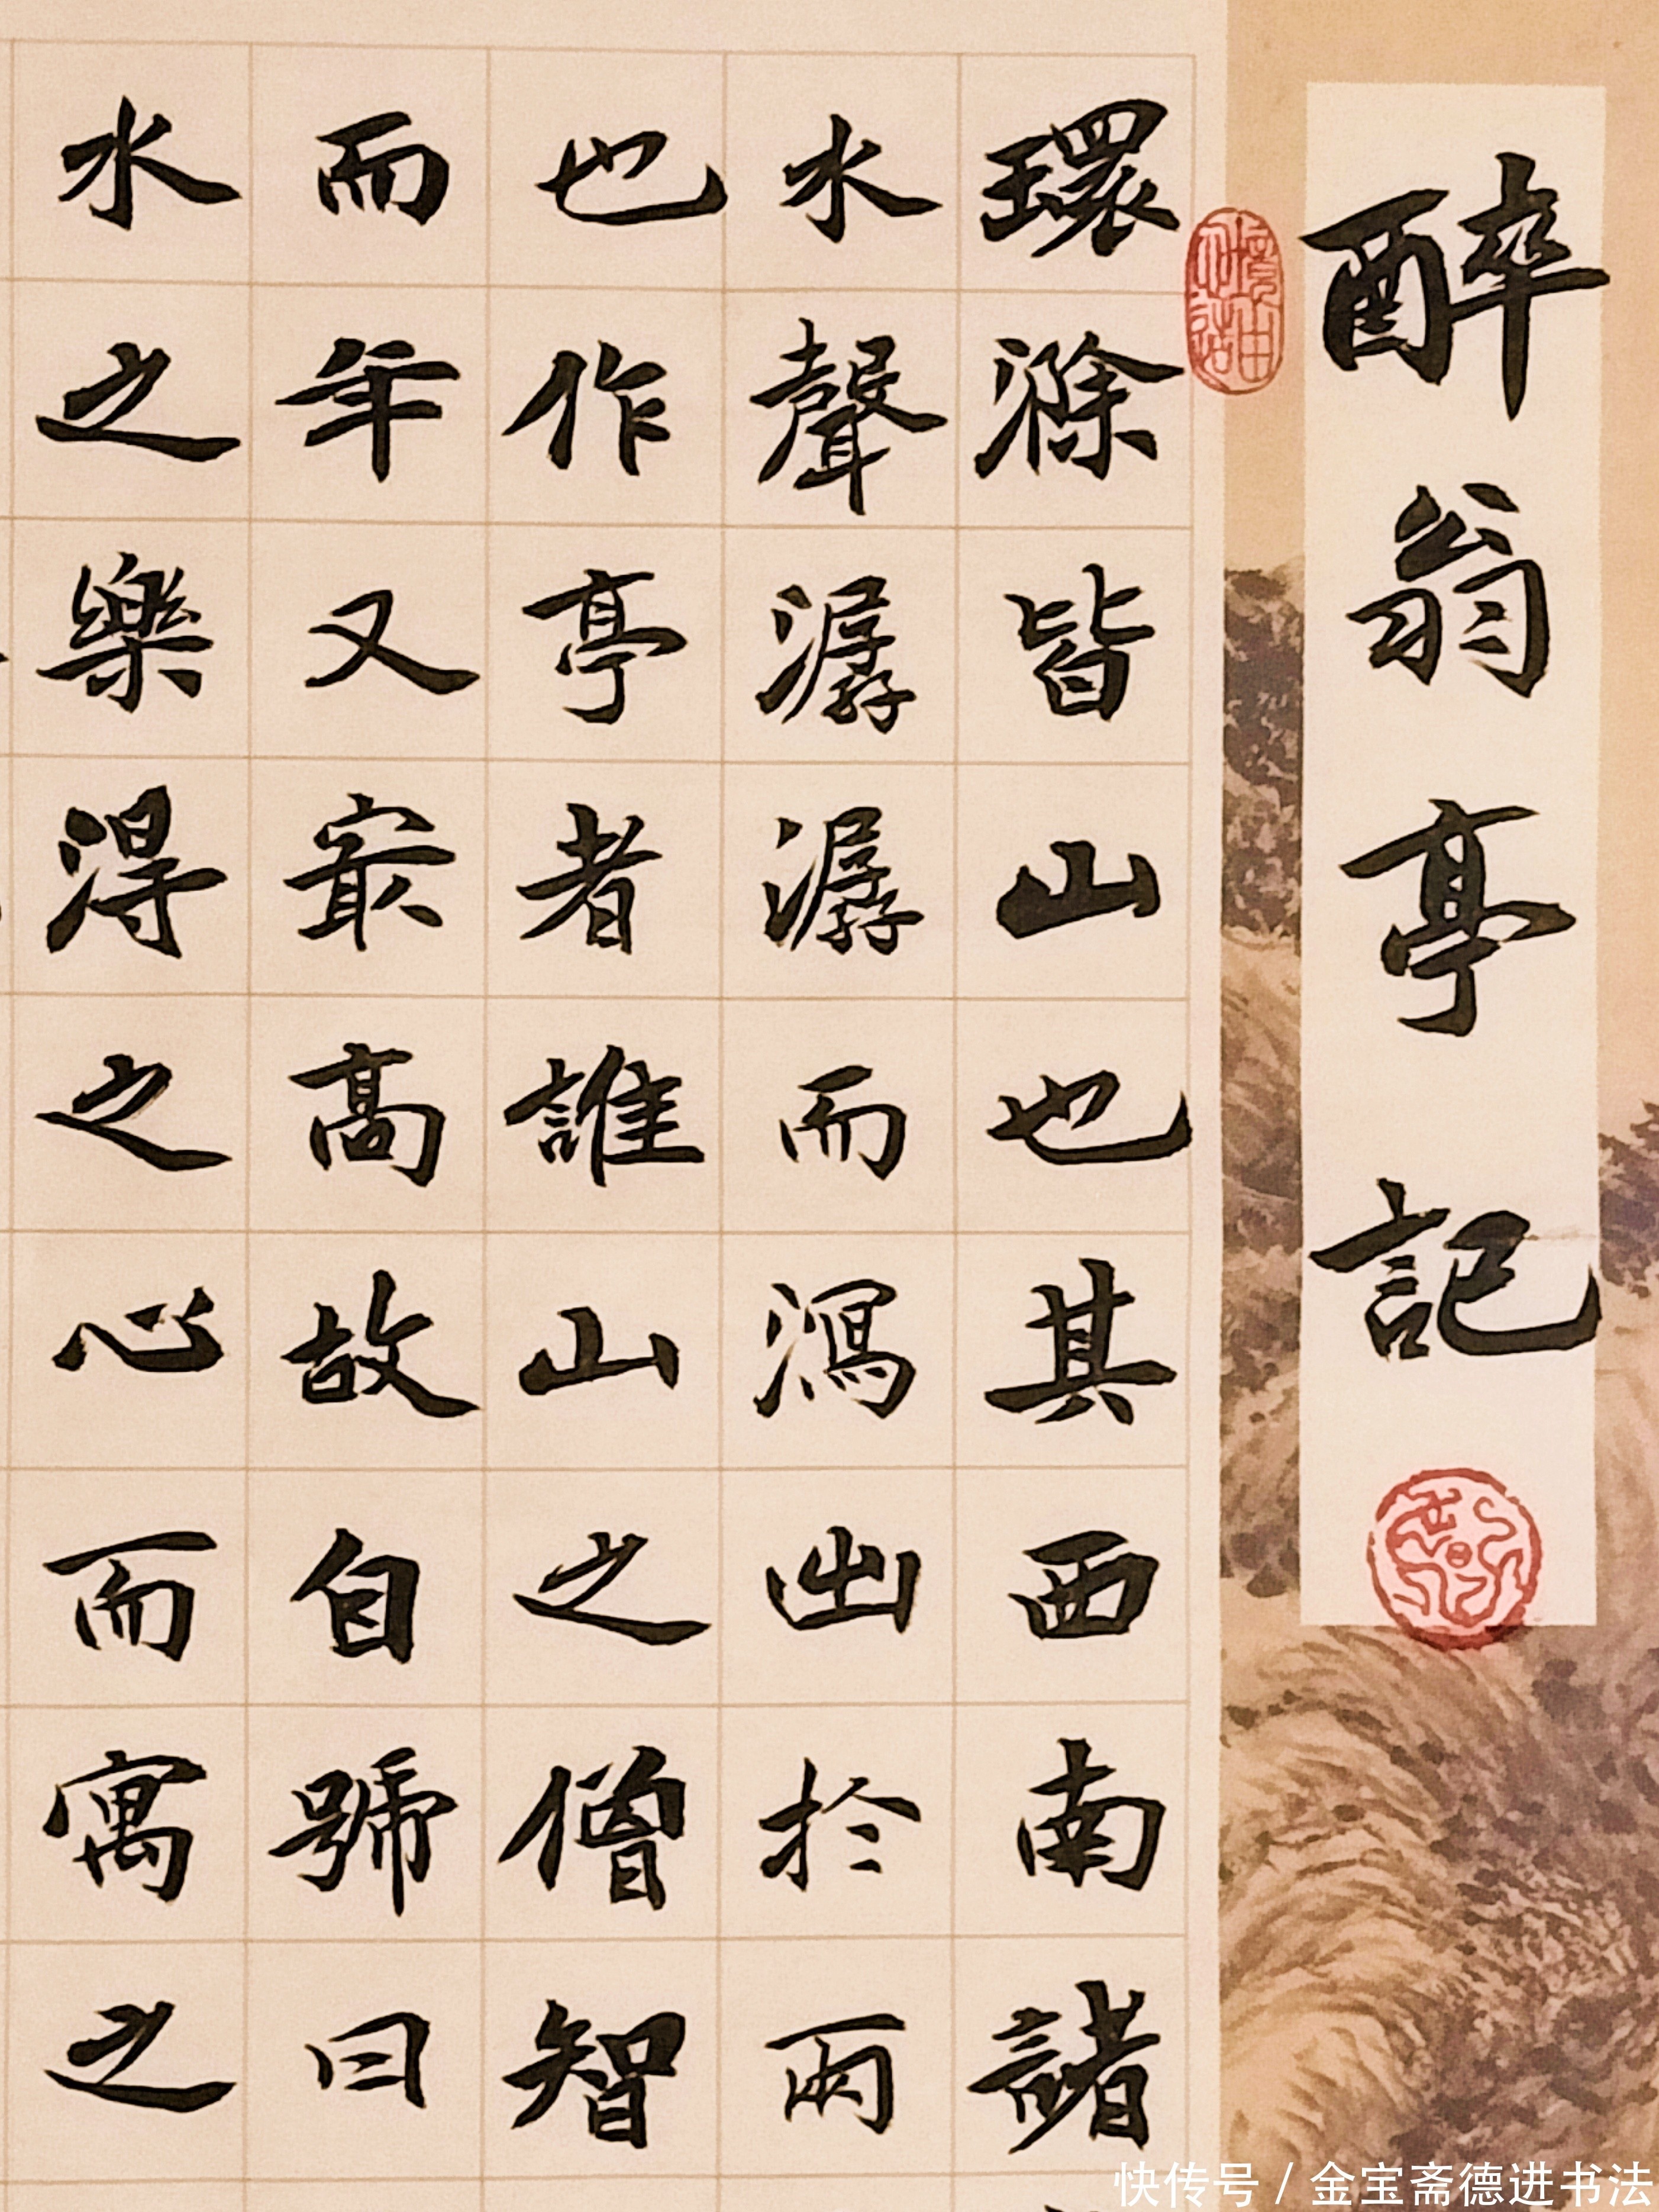 醉翁亭記
環滁皆山也其西南諸
水聲潺潺而瀉出於兩
也作亭者誰山之僧智
而年又最高故自號曰
水之樂得之心而寓之
快传号 / 金宝斋德进书法